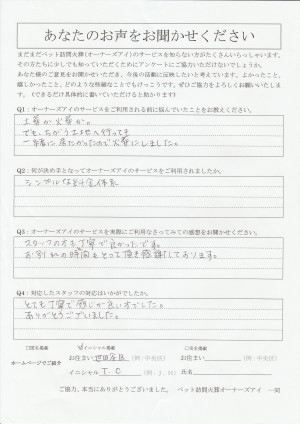 あなたのお声をお聞かせください
まだまだペット訪問火葬(オーナーズアイ)のサービスを知らない方がたくさんいらっしゃいます。
その方たちに少しでも知っていただくためにアンケートにご協力いただけないでしょうか。
あなた様のご意見をお聞かせいただき、今後の活動に反映したいと考えています。よかったこと、
嬉しかったこと、どのような些細なことでもけっこうです。ぜひご協力をよろしくお願いいたしま
す。(できるだけ具体的に書いていただけると助かります)
Q1:オーナーズアイのサービスをご利用される前に悩んでいたことをお教えください。
土葬か火葬か。
でも、ちがう土地へ行っても
一緒に居たかったので火葬にしました。
Q2:何が決め手となってオーナーズアイのサービスをご利用されましたか。
シンプルな料金体系
Q3:オーナーズアイのサービスを実際にご利用なさってみての感想をお聞かせください。
スタッフの方も丁寧で良かったです。
お別れの時間もとって頂き感謝しております。
Q4:対応したスタッフの対応はいかがでしたか。
とても丁寧で感じが良い方でした。
ありがとうございました。
イニシャル掲載
ホームページでご紹介
お住まい 世田谷区 (例:中央区) お住まい (例:中央区)
イニシャル T.O (例:J.M) 氏名
ご協力、本当にありがとうございました。 ペット訪問火葬オーナーズアイ 一同